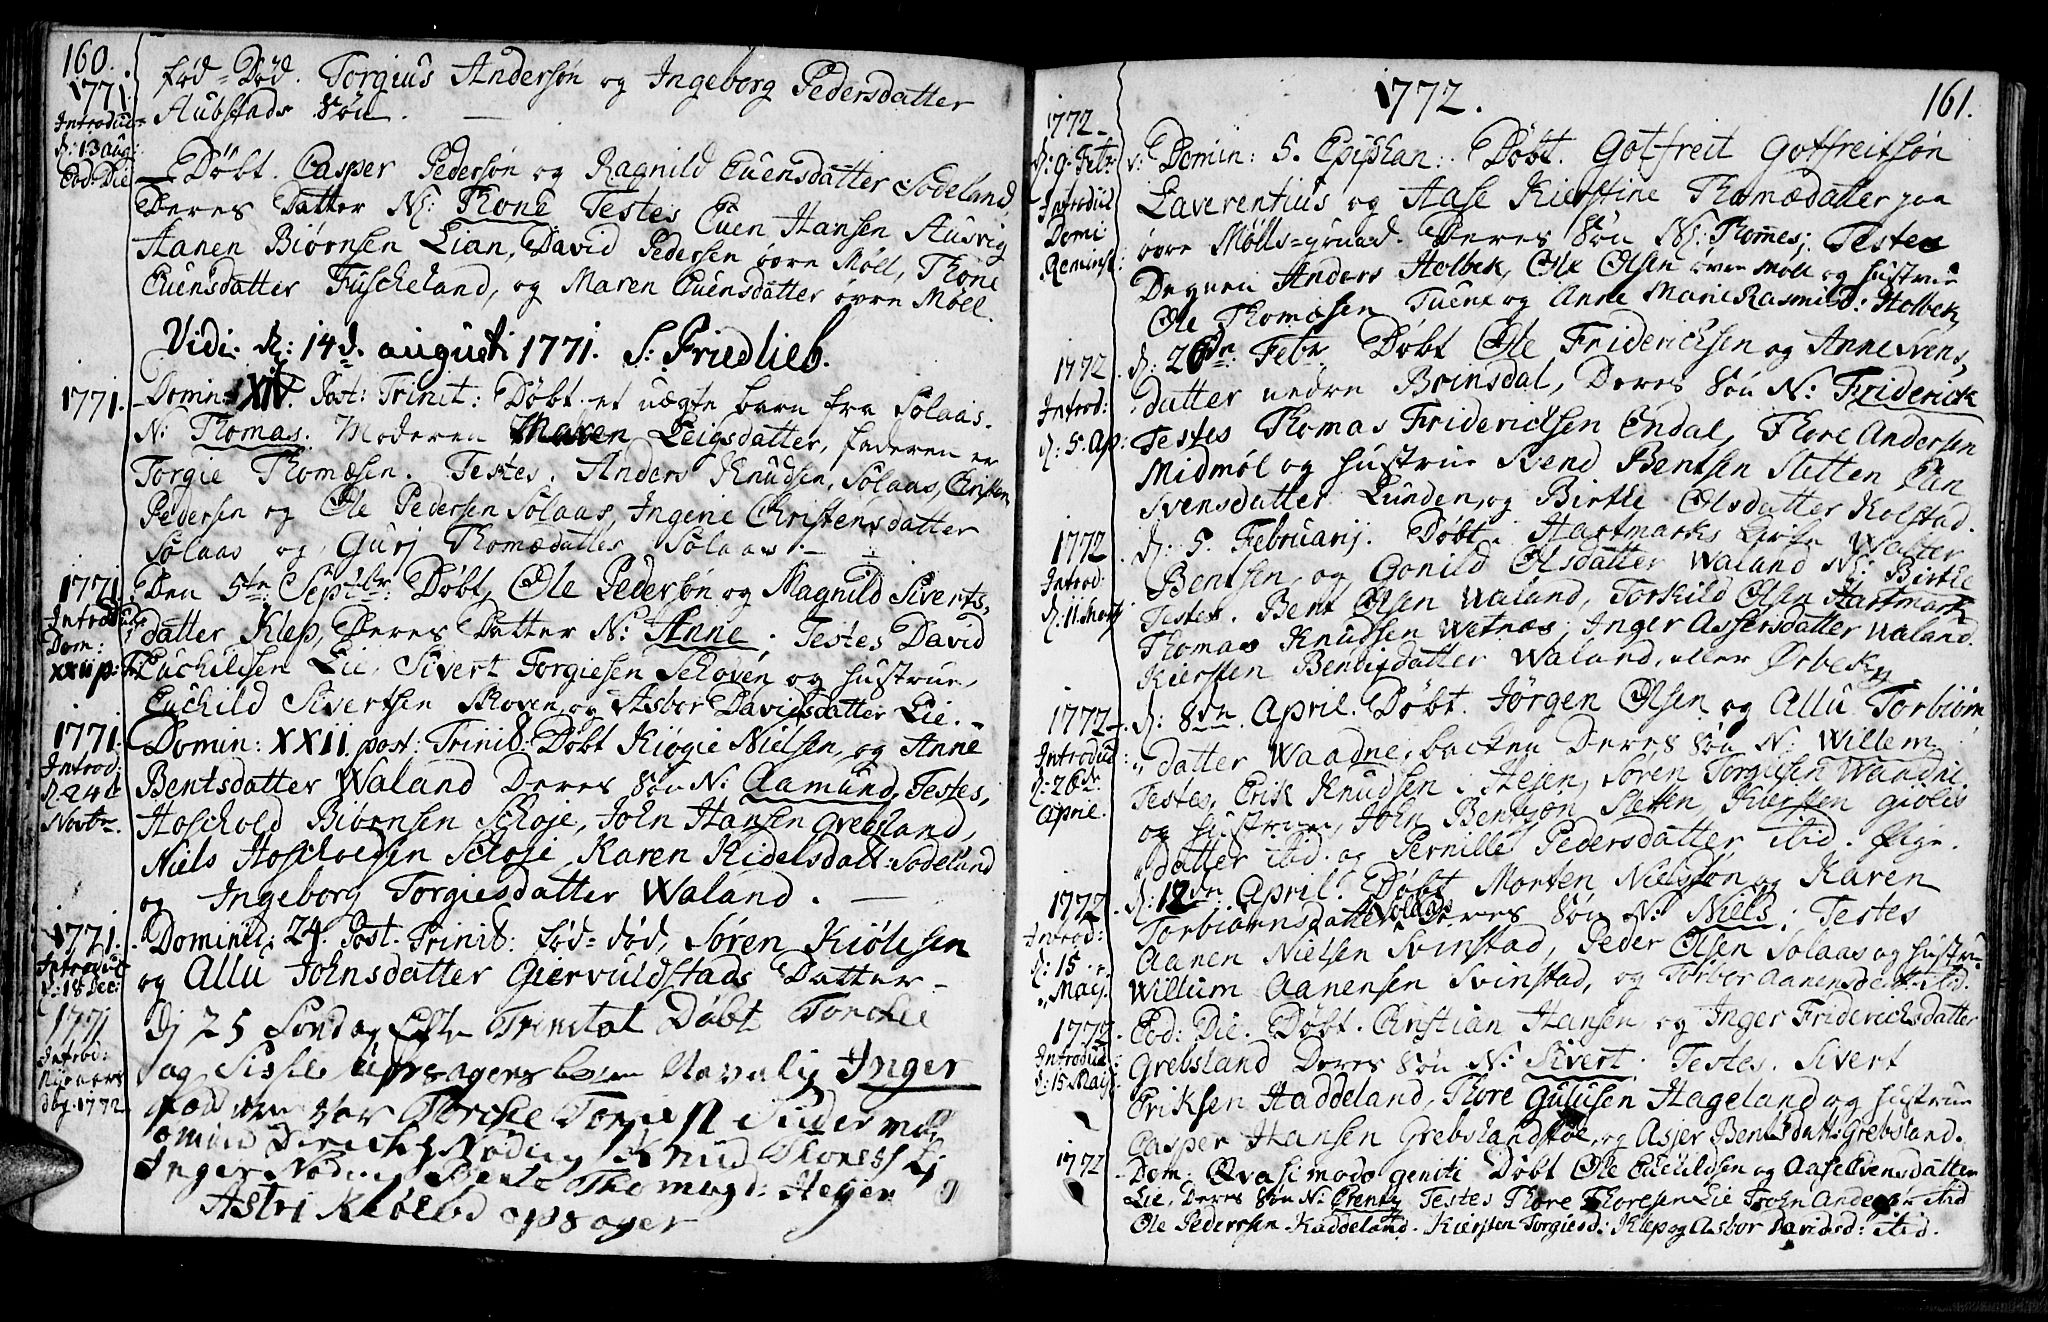 160.
1771.
Introduc=
d: 13 aug:
Eod: Die
fød=Død. Torgius Andersøn og Ingeborg Pedersdatter
Aubstads Søn.
Døbt. Casper Pedersøn og Ragnild Euensdatter Sodeland,
Deres Datter N: Thone Testes Euen Hansen Ausvig
Aanen Biørnsen Lian, David Pedersen øvre Møll, Thone
Euensdatter Fuscheland, og Maren Euensdatter øvre Møll.
Vidi. d: 14d. augusti 1771. S: Friedlieb.
1771.
Domin: XIV. Post: Trinit: Døbt et uægte barn fra Solaas.
N: Thomas. Moderen Maren Leigsdatter, faderen er
Torgie Thomæsen. Testes. Anders Knudsen, Solaas, Christen
Pedersen og Ole Pedersen Solaas, Ingerie Christensdatter
Solaas og Gurj Thomædatter Solaas.
1771.
Introduc:
Dom:
XXII p: Tr:
Den 5te Septbr: Døbt, Ole Pedersøn og Magnild Siverts,
datter Klep, Deres Datter N: Anne; Testes David
Euchildsen Lie, Sivert Torgiesen Schoven og hustrue,
Euchild Sivertsen Skoven, og Asbor Davidsdatter Lie.
1771:
Introd:
d. 24d
Novbr.
Domin: XXII post: Trinit: Døbt Kiøgie Nielsen, og Anne
Bentsdatter Waland Deres Søn N: Aamund, Testes,
Hoschold Biørnsen Schoje, John Hansen Grebsland,
Niels Hoscholdsen Schoje, Karen Kidelsdatt: Sodeland
og Ingeborg Torgiesdatter Waland.
1771.
Introduc
d: 18 Dec:
Dominic: 24. Post. Trinit: fød=død, Søren Kiølesen
og Allu Johnsdatter Giervuldstads Datter
1771
Introd:
Nyeaars
dag. 1772
Dj 25 Søndag Efter Trinitat Døbt Torchel
og Sissel Upsagers barn Navnlig Inger
fadderne var Torchel Torjesn Sudermøl
Omund Nøding Knud Thoness
Inger Nøding Berte Thomasd: Heyen
Astri Kleøebd opsager
1772.
161.
1772
d: 9. Febr
Introdud
Domi
Reminsc:
Domin: 5. Epiphan: Døbt. Gotfreit Gotfreitsøn
Laverentius og Aase Kierstine Thomædatter paa
øvre Mølls=grund. Deres Søn N: Thomes; Testes
Degnen Anders Holbek, Ole Olsen øvre Møll og hustrue
Ole Thomæsen Tuene og Anne Marie Rasmisd: Holbek,
1772
Introd:
d: 5. Ap:
d: 26de Febr Døbt Ole Friderichsen og Anne Svens,
datter nedre Brinsdal, Deres Søn N: Friderick
Testes Thomas Friderichsen Endal, Thore Andersen
Midmøl og hustrue Svend Bentsen Sletten Ean
Svensdatter Lunden, og Birthe Olsdatter Kolstad.
1772
Introd:
d: 11. Martj
d: 5. Februarij. Døbt i Hartmarks Kirke Wester
Bentsen, og Gonild Olsdatter Waland N: Birthe
Testes. Bent Olsen Waland, Torkild Olsen Hartmark
Thomas Knudsen Wetnæs, Inger Assersdatter Waland.
Kiersten Bentisdatter Waland, eller Ørbek
1772
Introdud
d: 26de
Aprie.
d: 8de April. Døbt. Jørgen Olsen og Allu Torbiørn
datter Waadne, backen Deres Søn N: Willem
Testes, Erik Knudsen i Hejen, Søren Torgiesen Wandne
og hustrue, John Bentson Sletten, Kiersten giølis
datter ibid. og Pernille Pedersdatter ibid. Pige.
1772
Introd:
d: 15
Maij.
d: 12de April. Døbt Morten Nielssøn og Karen
Torbiørnsdatter Solaas Deres Søn N: Niels. Testes
Aanen Nielsen Svinstad, Peder Olsen Solaas og hustru
Willum Aanensen Svinstad, og Torbor Aanensdatt ibid.
1772
Introdud
d: 15 Maij
Eod: Die. Døbt. Christian Hansen og Inger Friderichsdatter
Grebsland Deres Søn N: Sivert. Testes. Sivert
Eriksen Haddeland, Thore Gulusen Hageland og hustrue
Casper Hansen Grebsland, og Asjer Bentsdatt: Grebsland.
1772
Dom: Qvasimodo geniti Døbt Ole Euchildsen og Aase Evensdatter
Lie, Deres Søn N: Erentz Testes Thore Thoresen Lie John Andersen ibid
Ole Pedersen Kaddeland. Kiersten Torgiesd: Klep og Asbor Davidsd: ibid.